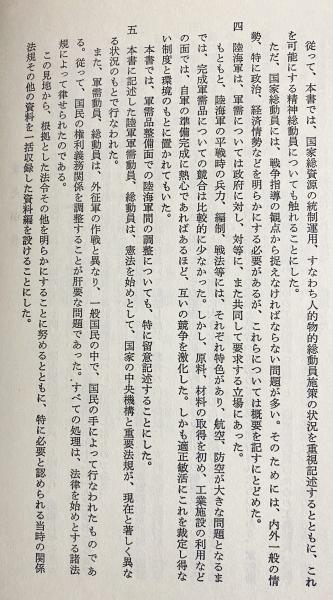 従って、本書では、国家総資源の統制運用、すなわち人的物的総動員施策の状況を重視記述するとともに、これ
を可能にする精神総動員についても触れることにした。
ただ、国家総動員には、戦争指導の観点から捉えなければならない問題が多い。そのためには、内外一般の情
勢、特に政治、経済情勢などを明らかにする必要があるが、これらについては概要を記すにとどめた。
四　陸海軍は、軍需については政府に対し、対等に、また共同して要求する立場にあった。
もともと、陸海軍の平戦時の兵力、編制、戦法等には、それぞれ特色があり、航空、防空が大きな問題となるま
では、完成軍需品についての競合は比較的に少なかった。しかし、原料、材料の取得を初め、工業施設の利用など
の面では、自軍の準備完成に熱心であればあるほど、互いの競争を激化した。しかも適正敏活にこれを裁定し得な
い制度と環境のもとに置かれてもいた。
本書では、軍需品整備面での陸海軍間の調整についても、特に留意記述することにした。
五　本書に記述した陸軍軍需動員、総動員は、憲法を始めとして、国家の中央機構と重要法規が、現在と著しく異な
る状況のもとで行なわれた。
また、軍需動員、総動員は、外征軍の作戦と異なり、一般国民の中で、国民の手によって行なわれたものであ
る。従って、国民の権利義務関係を調整することが肝要な問題であった。すべての処理は、法律を始めとする諸法
規によって律せられたのである。
この見地から、根拠とした法令その他を明らかにすることに努めるとともに、特に必要と認められる当時の関係
法規その他の資料を一括収録した資料編を設けることにした。